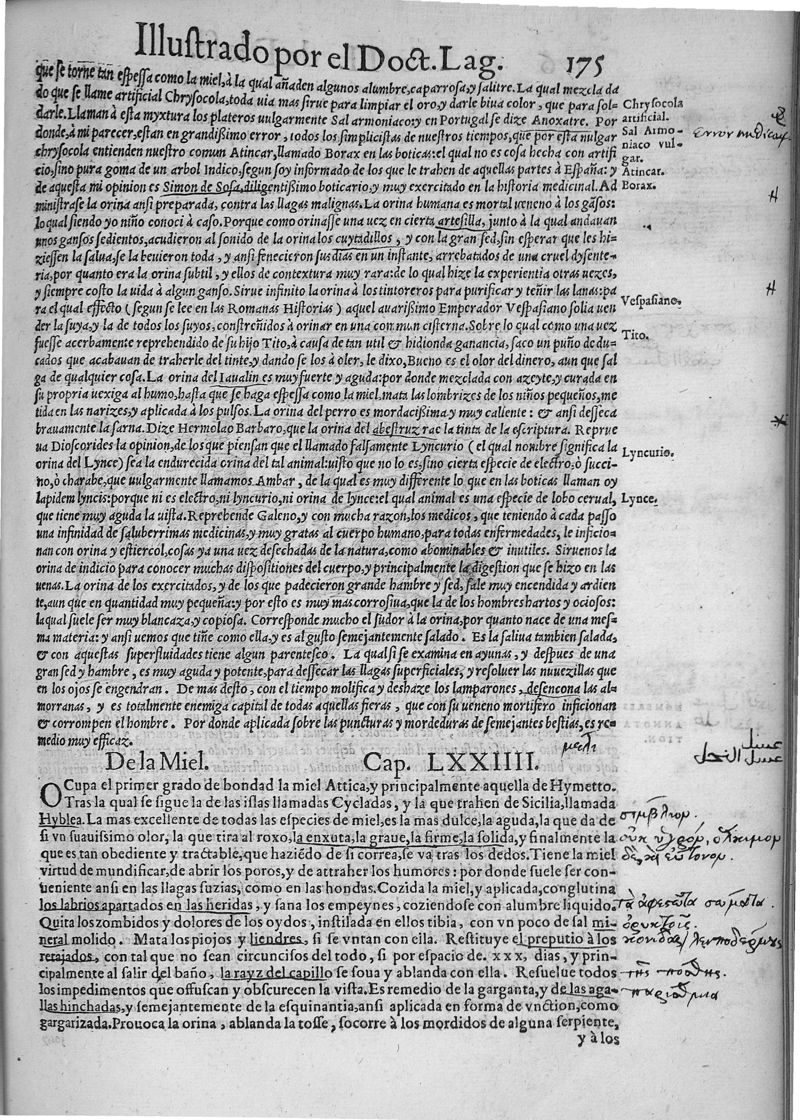 Illustrado por el Doct. Lag. 175
que se torne tan espessa como la miel, à la qual añaden algunos alumbre, caparrosa, y salitre. La qual mezcla da
do que se llame artificial Chrysocola, toda uia mas sirue para limpiar el oro, y darle biua color, que para sol-
darle. Llaman à esta myxtura los plateros uulgarmente Sal armoniaco: y en Portugal se dize Anoxatre. Por
donde, à mi parecer, estan en grandißimo error, todos los simplicistas de nuestros tiempos, que por esta uulgar
chrysocola entienden nuestro comun Atincar, llamado Borax en las boticas: el qual no es cosa hecha con artifi
cio, sino pura goma de un arbol Indico, segun soy informado de los que le trahen de aquellas partes à España: y
de aquesta mi opinion es Simon de Sosa, diligentißimo boticario, y muy exercitado en la historia medicinal. Ad
ministrase la orina ansi preparada, contra las llagas malignas. La orina humana es mortal ueneno à los gasos:
lo qual siendo yo niño conoci à caso. Porque como orinasse una uez en cierta artesilla, junto à la qual andauan
unos gansos sedientos, acudieron al sonido de la orina los cuytadillos, y con la gran sed, sin esperar que les hi-
ziessen la salua, se la beuieron toda, y ansi fenecieron sus dias en un instante, arrebatados de una cruel dysente-
ria, por quanto era la orina subtil, y ellos de contextura muy rara: de lo qual hize la experientia otras uezes,
y siempre costo la uida à algun ganso. Sirue infinito la orina à los tintoreros para purificar y teñir las lanas: pa
ra el qual effecto (segun se lee en las Romanas Historias) aquel auarißimo Emperador Vespasiano solia uen
der la suya, y la de todos los suyos, constreñidos à orinar en una comun cisterna. Sobre lo qual cómo una uez
fuesse acerbamente reprehendido de su hijo Tito, à causa de tan util & hidionda ganancia, saco un puño de du-
cados que acabauan de traherle del tinte, y dando se los à oler, le dixo, Bueno es el olor del dinero, aun que sal
ga de qualquier cosa. La orina del Iaualin es muy fuerte y aguda: por donde mezclada con azeyte, y curada en
su propria uexiga al humo, hasta que se haga espessa como la miel, mata las lombrizes de los niños pequeños, me
tida en las narizes, y aplicada à los pulsos. La orina del perro es mordacißima y muy caliente: & ansi desseca
brauamente la sarna. Dize Hermolao Barbaro, que la orina del abestruz rae la tinta de la escriptura. Reprue
ua Dioscorides la opinion, de los que piensan que el llamado falsamente Lyncurio (el qual nombre significa la
orina del Lynce) sea la endurecida orina del tal animal: uisto que no lo es, sino cierta especie de electro, ò succi-
no, ò charabe, que uulgarmente llamamos Ambar, de la qual es muy differente lo que en las boticas llaman oy
lapidem lyncis: porque ni es electro, ni lyncurio, ni orina de lynce: el qual animal es una especie de lobo cerual,
que tiene muy aguda la uista. Reprehende Galeno, y con mucha razon, los medicos, que teniendo à cada passo
una infinidad de saluberrimas medicinas, y muy gratas al cuerpo humano, para todas enfermedades, le inficio-
nan con orina y estiercol, cosas ya una uez desechadas de la natura, como abominables & inutiles. Siruenos la
orina de indicio para conocer muchas dispositiones del cuerpo, y principalmente la digestion que se hizo en las
uenas. La orina de los exercitados, y de los que padecieron grande hambre y sed, sale muy encendida y ardien
te, aun que en quantidad muy pequeña: y por esto es muy mas corrosiua, que la de los hombres hartos y ociosos:
la qual suele ser muy blancaza, y copiosa. Corresponde mucho el sudor à la orina, por quanto nace de una mes-
ma materia: y ansi uemos que tiñe como ella, y es al gusto semejantemente salado. Es la saliua tambien salada,
& con aquestas superfluidades tiene algun parentesco. La qual si se examina en ayunas, y despues de una
gran sed y hambre, es muy aguda y potente, para dessecar las llagas superficiales, y resoluer las nuuezillas que
en los ojos se engendran. De mas desto, con el tiempo molifica y deshaze los lamparones, desencona las al-
morranas, y es totalmente enemiga capital de todas aquellas fieras, que con su ueneno mortifero inficionan
& corrompen el hombre. Por donde aplicada sobre las puncturas y mordeduras de semejantes bestias, es re-
medio muy efficaz.
Chrysocola
artificial.
Sal Armo-
niaco vul-
gar.
Atincar.
Borax.
Vespasiano.
Tito.
Lyncurio.
Lynce.
De la Miel. Cap. LXXIIII.
μελι
عسل
عسل النحل
OCupa el primer grado de bondad la miel Attica, y principalmente aquella de Hymetto.
Tras la qual se sigue la de las islas llamadas Cycladas, y la que trahen de Sicilia, llamada
Hyblea. La mas excellente de todas las especies de miel, es la mas dulce, la aguda, la que da de
si vn suauissimo olor, la que tira al roxo, la enxuta, la graue, la firme, la solida, y finalmente la
que es tan obediente y tractable, que haziẽdo de si correa, se va tras los dedos. Tiene la miel
virtud de mundificar, de abrir los poros, y de attraher los humores: por donde suele ser con-
ueniente ansi en las llagas suzias, como en las hondas. Cozida la miel, y aplicada, conglutina
los labrios apartados en las heridas, y sana los empeynes, coziendose con alumbre liquido.
Quita los zombidos y dolores de los oydos, instilada en ellos tibia, con vn poco de sal mi-
neral molido. Mata los piojos y liendres, si se vntan con ella. Restituye el preputio à los
retajados, con tal que no sean circuncisos del todo, si por espacio de. xxx, dias, y prin-
cipalmente al salir del baño, la rayz del capillo se soua y ablanda con ella. Resuelue todos
los impedimentos que offuscan y obscurecen la vista. Es remedio de la garganta, y de las aga-
llas hinchadas, y semejantemente de la esquinantia, ansi aplicada en forma de vnction, como
gargarizada. Prouoca la orina, ablanda la tosse, socorre à los mordidos de alguna serpiente,
y à los